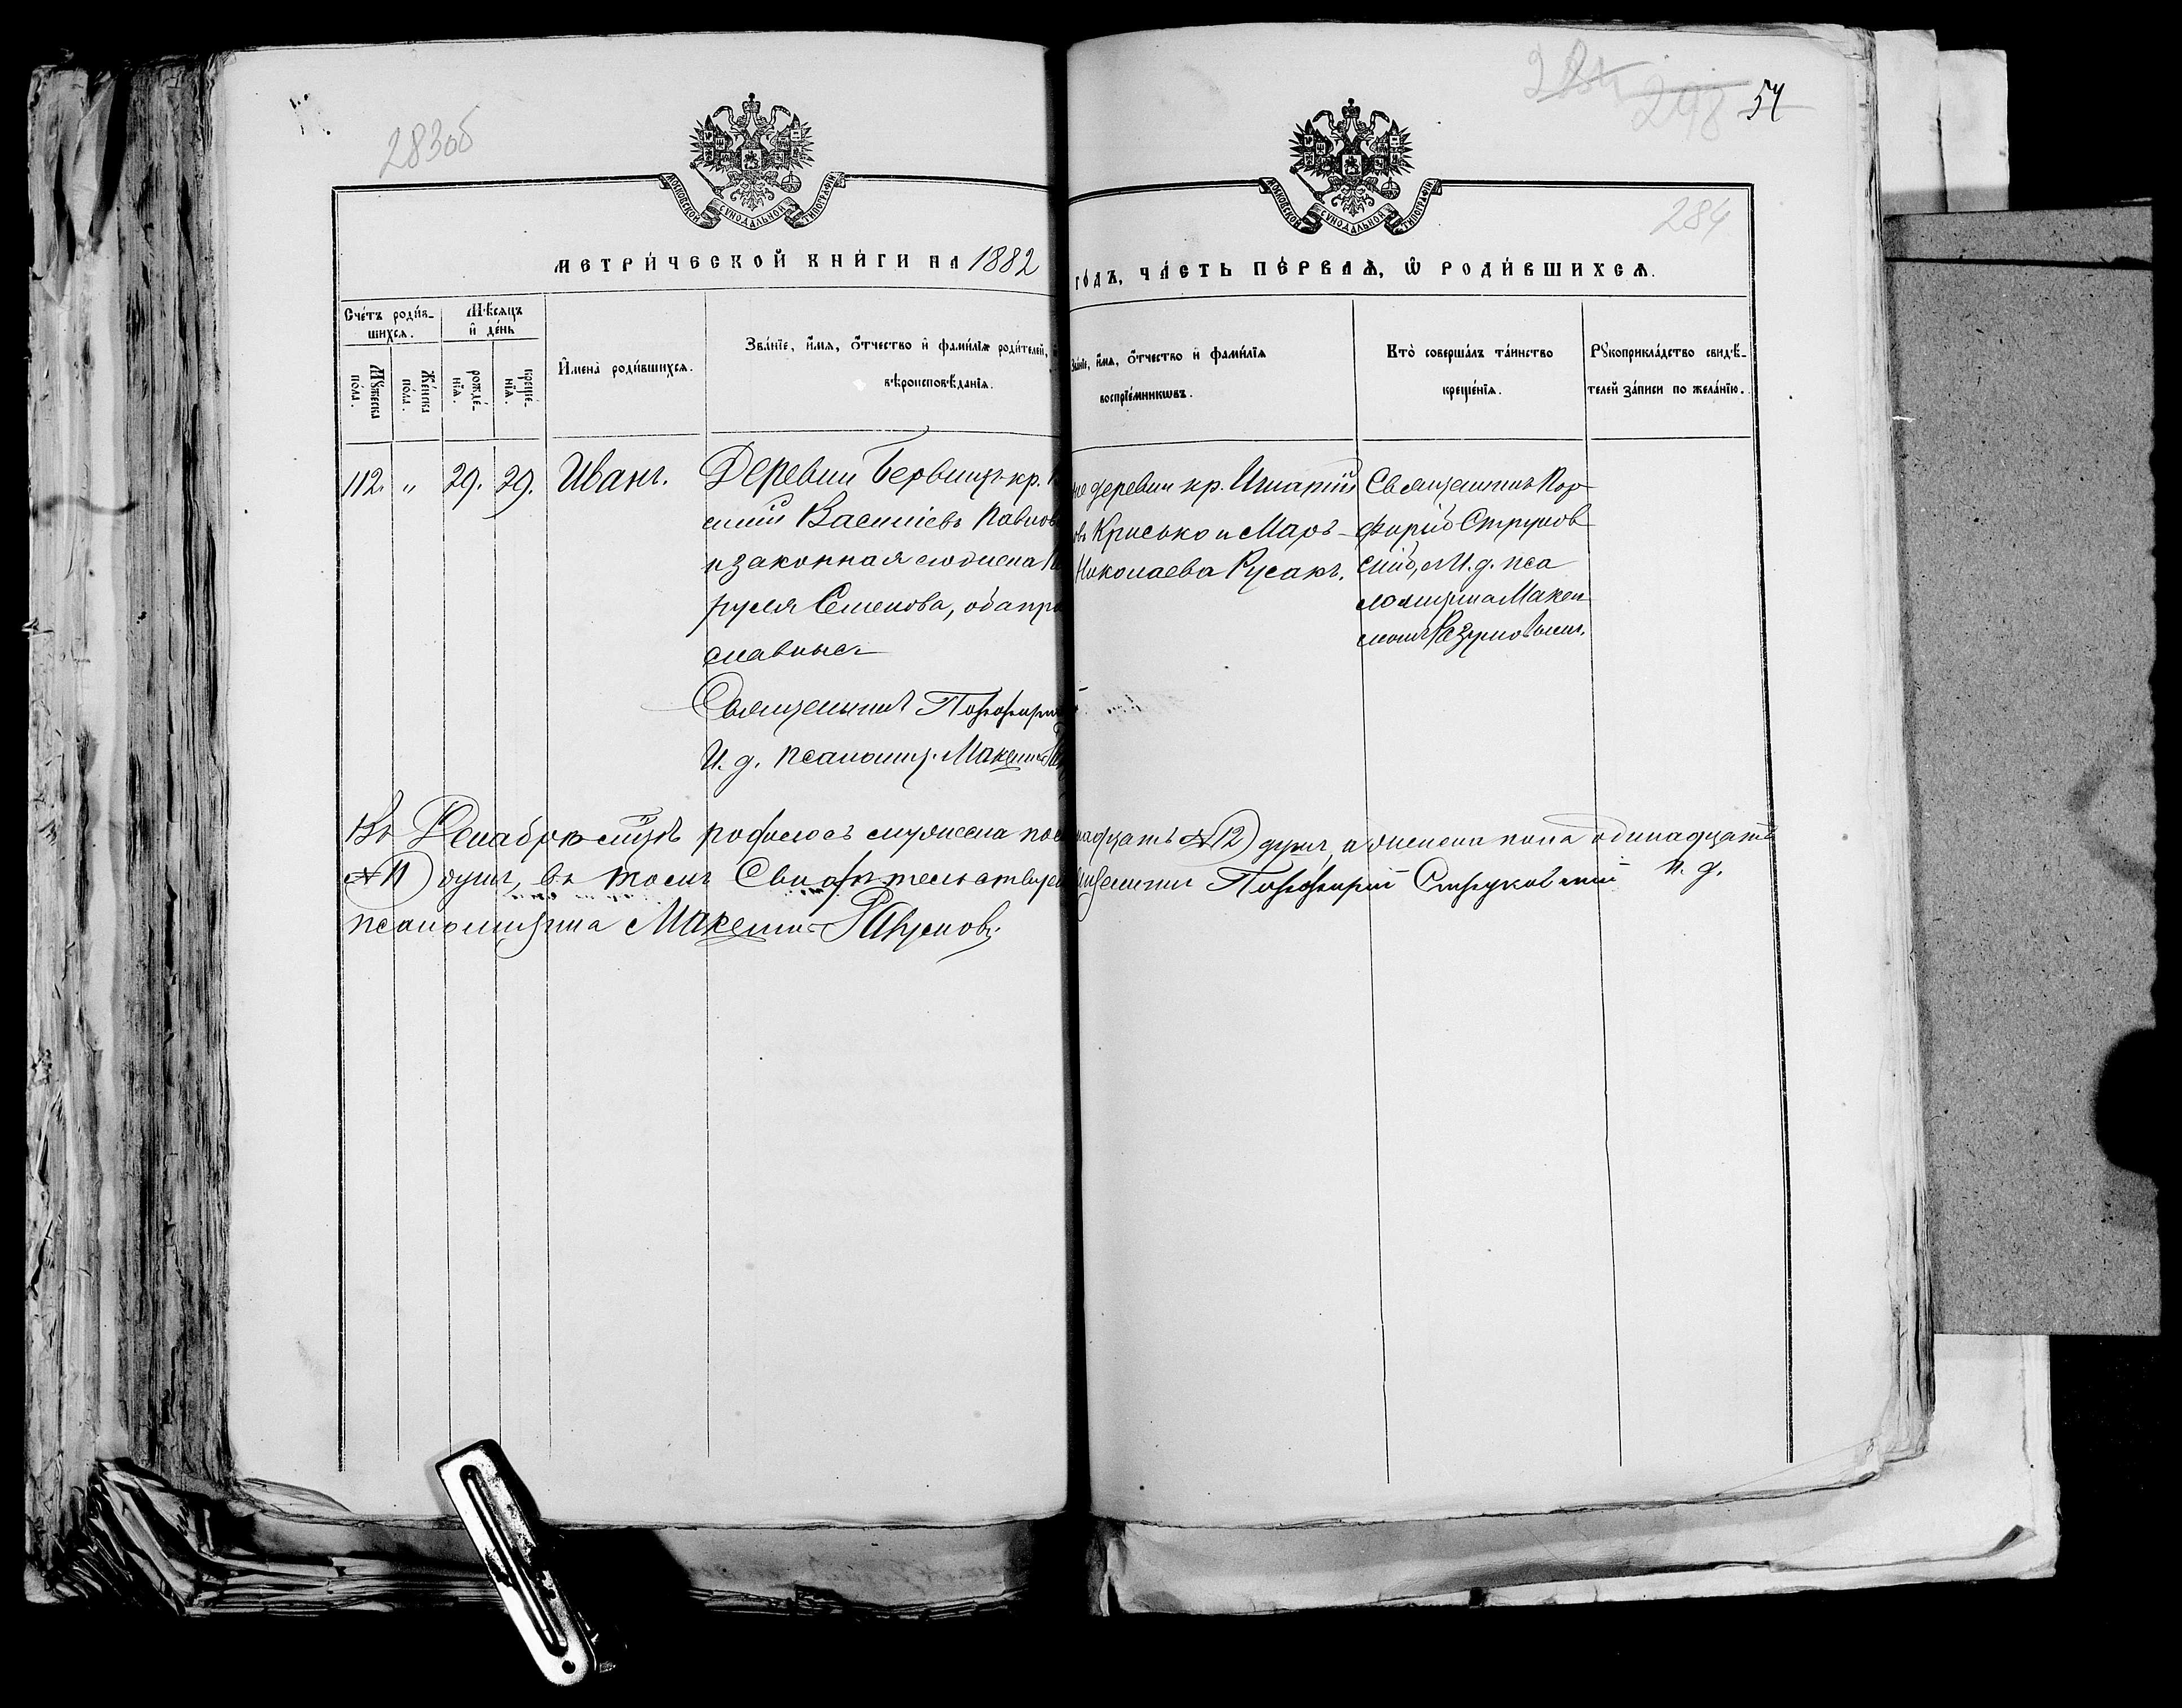 283об
284 298 54
284
МОСКОВСКОЙ СѴНОДАЛЬНОЙ ТИПОГРАФІИ
МОСКОВСКОЙ СѴНОДАЛЬНОЙ ТИПОГРАФІИ
МЕТРИ́ЧЕСКОЙ КНИ́ГИ НА 1882 ГО́ДЪ, ЧА́СТЬ ПЕ́РВАѦ, Ѡ҆ РОДИ́ВШИХСѦ.
Сче́тъ роди́в-
шихсѧ.
Мꙋ́жеска пола.
Же́нска пола.
Мѣ́сѧцъ
и҆ де́нь
рожде́-
нїѧ.
креще́-
нїѧ.
И҆мена̀ роди́вшихсѧ.
Зва́нїе, и҆́мѧ, ѻ҆́тчество и҆ фами́лїѧ роди́телей,
вѣроисповѣ́данїѧ.
Зва́нїе, и҆́мѧ, ѻ҆́тчество и҆ фами́лїѧ
воспрїе́мникѡвъ.
Кто̀ соверша́лъ та́инство
креще́нїѧ.
Рꙋкоприкла́дство свидѣ́-
телей за́писи по жела́нїю.
112. „ 29. 29. Иванъ.
Деревни Бервищъ кр.
Василіевъ Павлов
и законная его жена
Семенова, оба пра
славные
Священникъ Порфирій
И. д. псаломщ. Максимъ
же деревни кр. Игнатій
овъ Крисько и Мар-
Николаева Русакъ.
Священникъ Пор-
фирій Струков
скій, с И. д. пса
ломщика Макси
момъ
Въ Декабрѣ мцѣ родилось мужеска пол надцать № 12) душъ, а женска пола одинадцать
№ 11) душъ, въ томъ Свидѣтельствуе Священникъ Порфирій Струковскій И. д.
псаломщика Максимъ